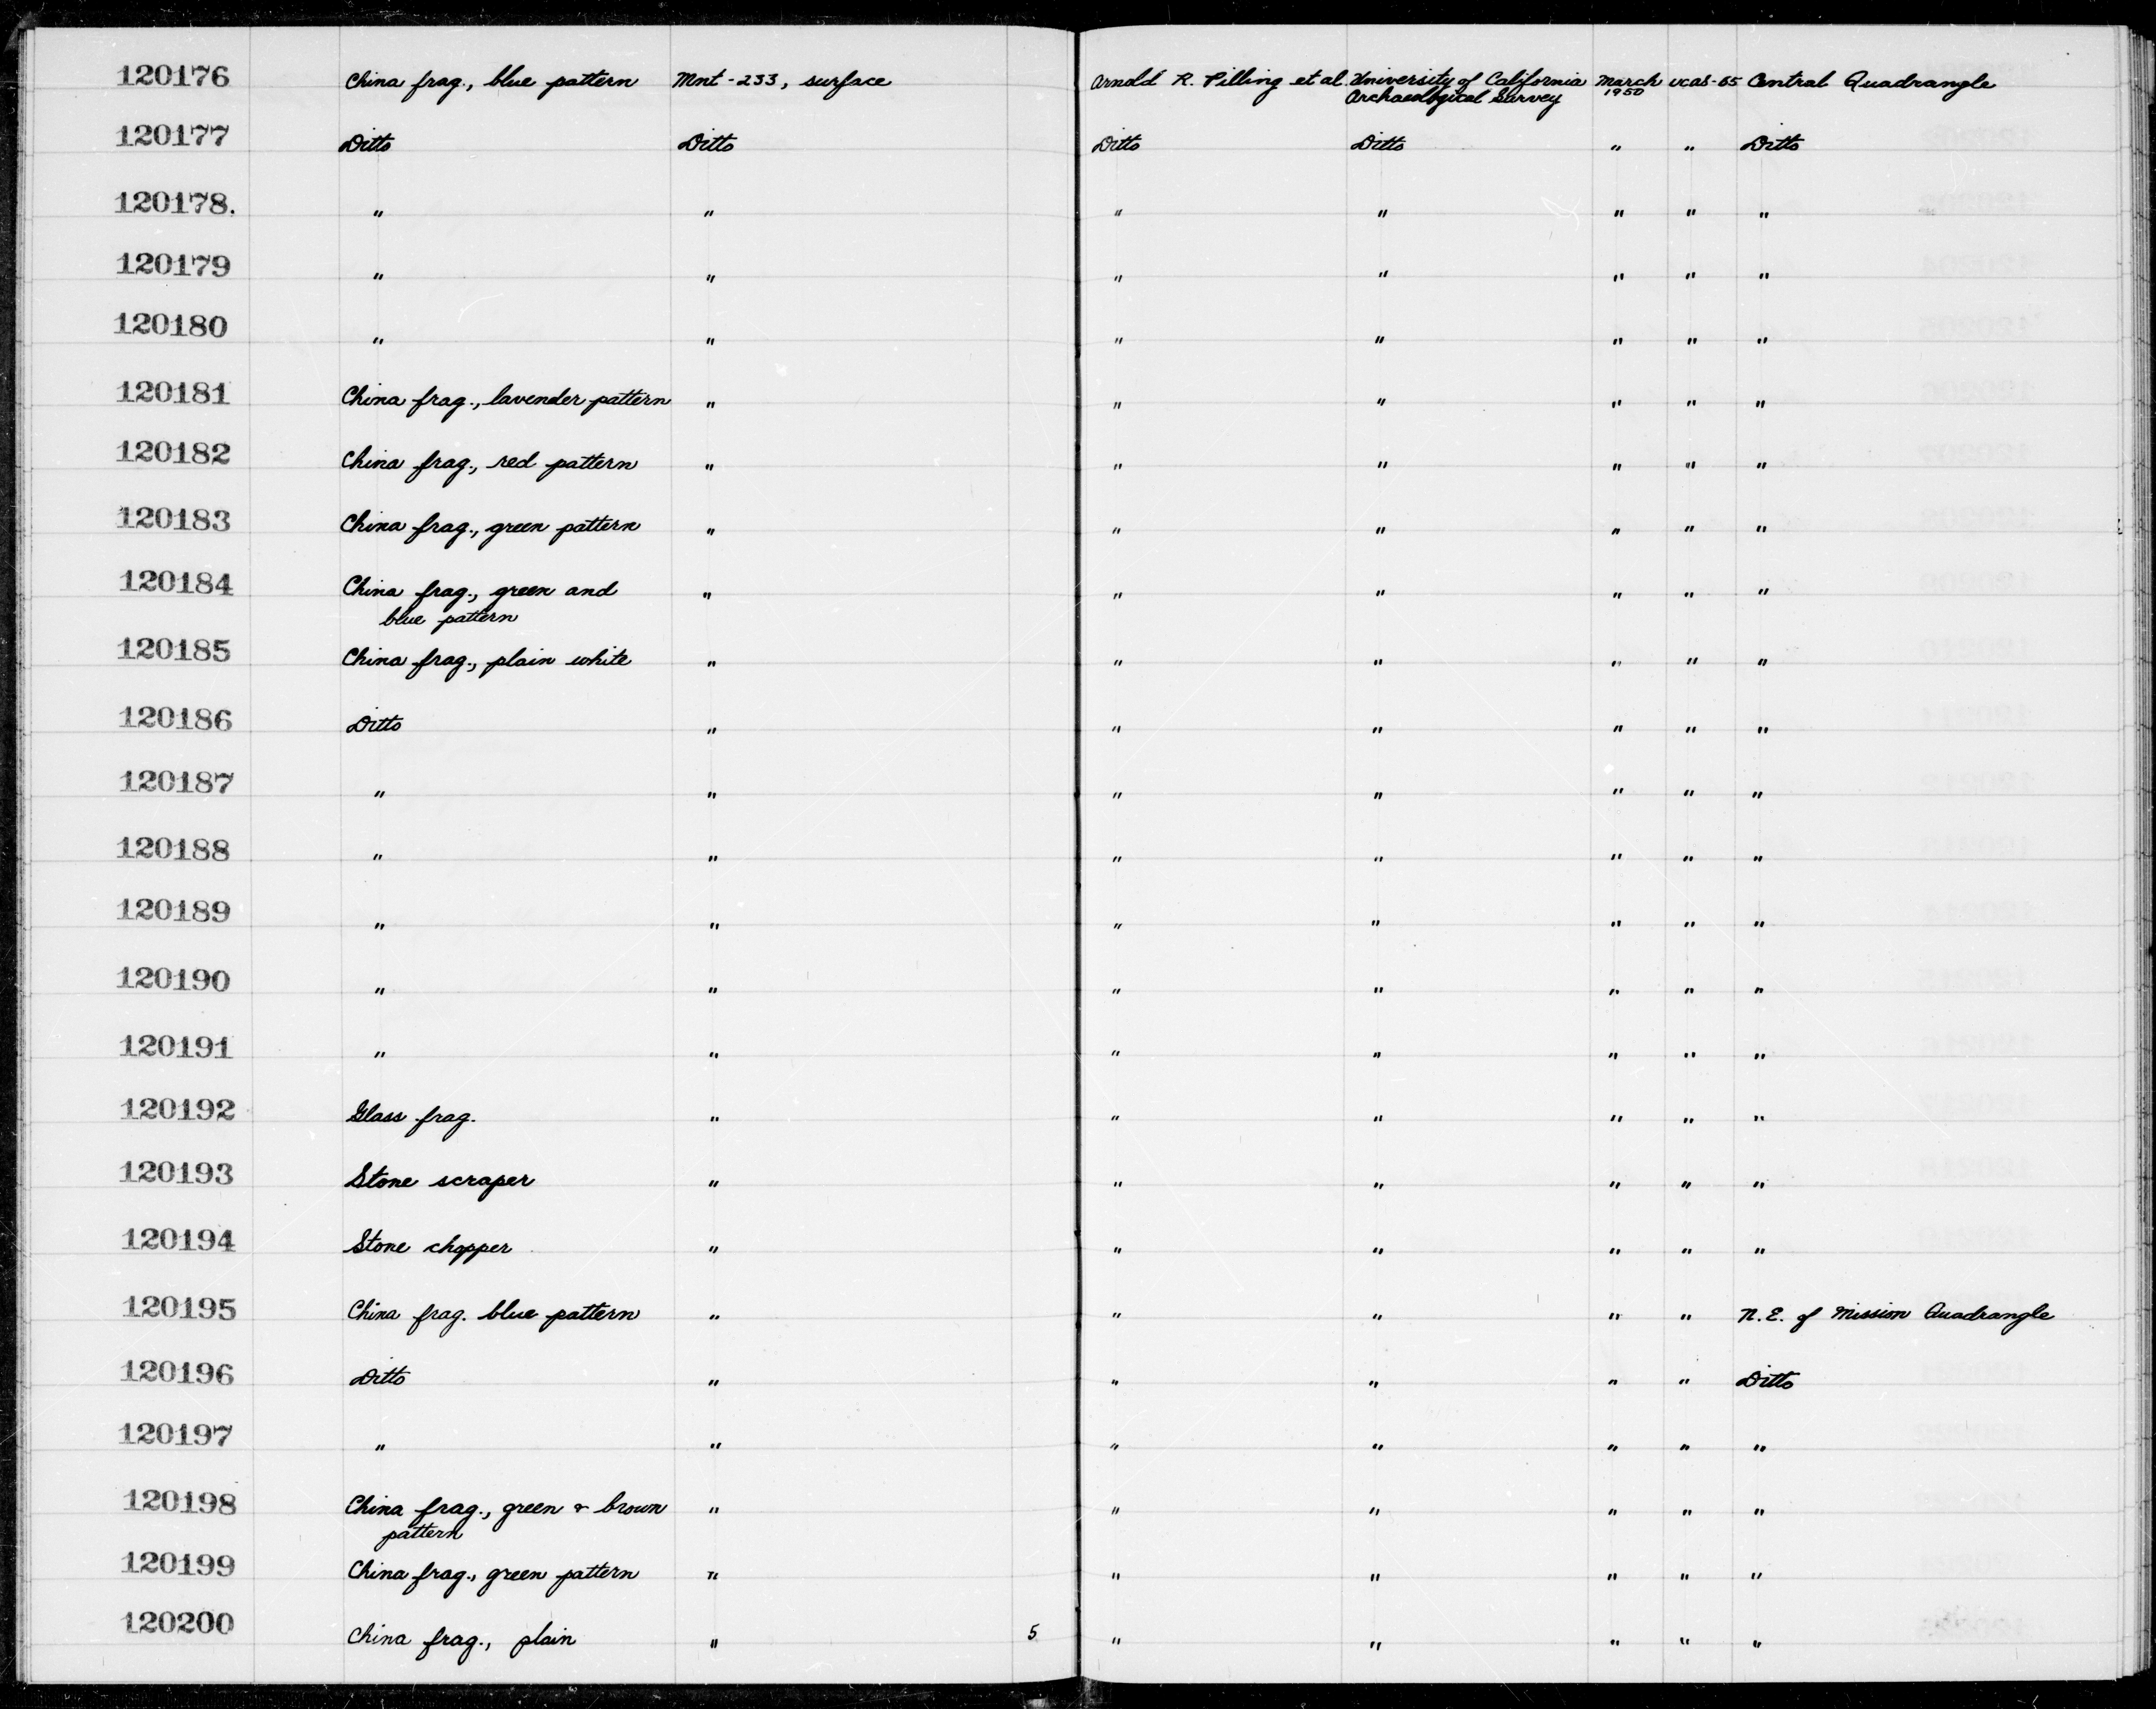 120176 China frag., blue pattern Mnt-233, surface Arnold R. Pilling et al. University of California March ucas-85 Central Quadrangle
Archaeological Survey 1950
120177 Ditto Ditto Ditto Ditto " " Ditto
120178. " " " " " " "
120179 " " " " " " "
120180 " " " " " " "
120181 China frag., lavender pattern " " " " " "
120182 China frag., red pattern " " " " " "
120183 China frag., green pattern " " " " " "
120184 China frag., green and " " " " " "
blue pattern
120185 China frag., plain white " " " " " "
120186 Ditto " " " " " "
120187 " " " " " " "
120188 " " " " " " "
120189 " " " " " " "
120190 " " " " " " "
120191 " " " " " " "
120192 Glass frag. " " " " " "
120193 Stone scraper " " " " " "
120194 Stone chopper " " " " " "
120195 China frag. blue pattern " " " " " N.E. of Mission Quadrangle
120196 Ditto " " " " " Ditto
120197 " " " " " " "
120198 China frag., green & brown " " " " " "
pattern
120199 China frag., green pattern " " " " " "
120200 China frag., plain " 5 " " " " "